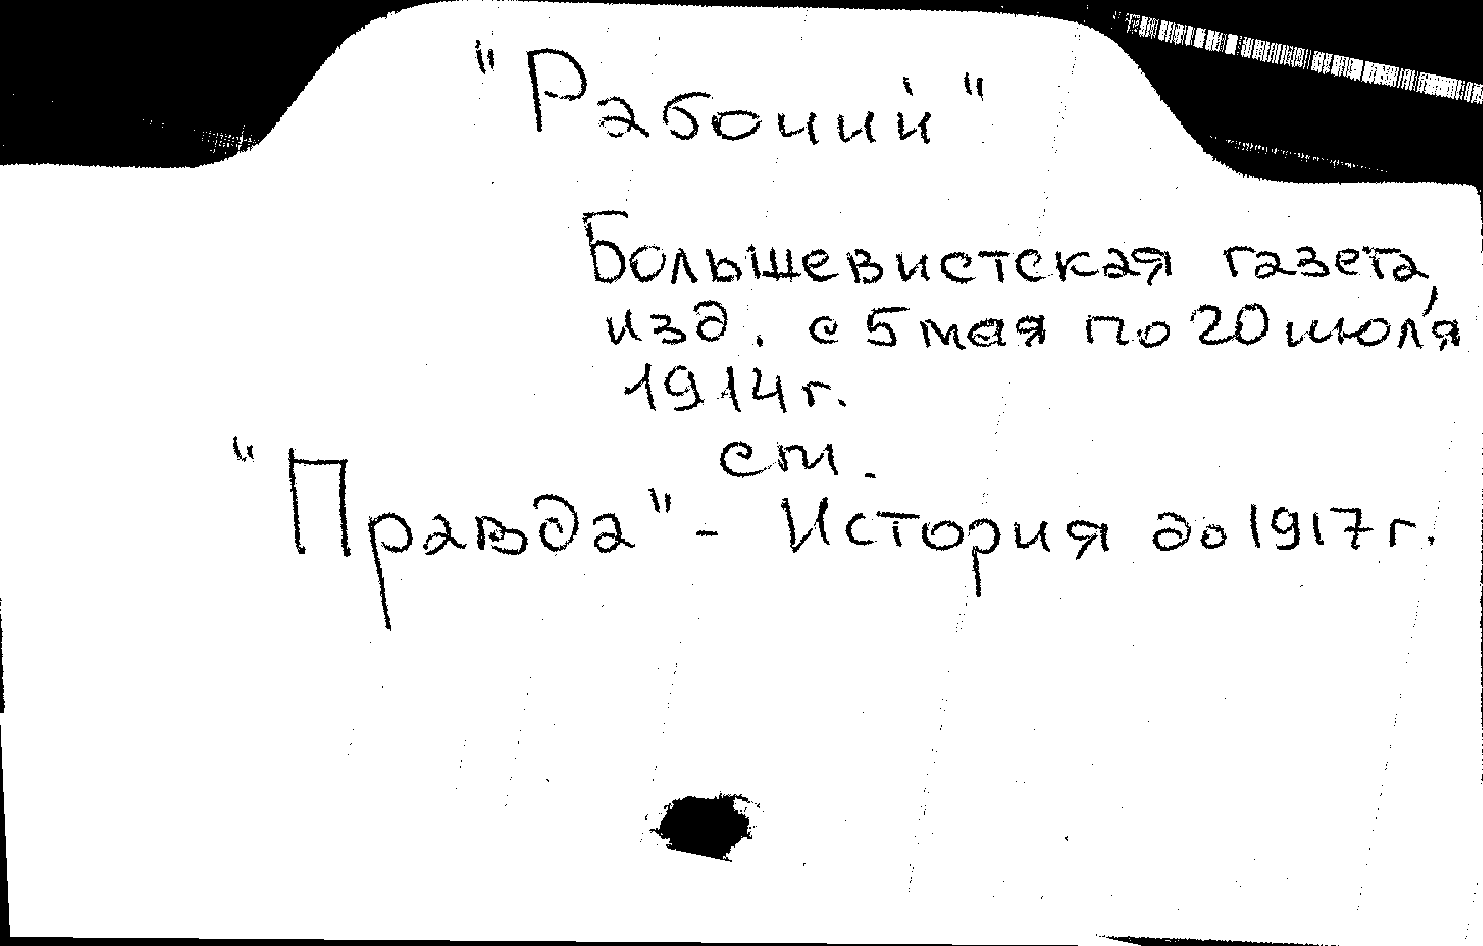 "Рабочий"
Большевистская газета,
изд. с 5 мая по 20 июля
1914 г.
см.
"Правда" - История до 1917 г.